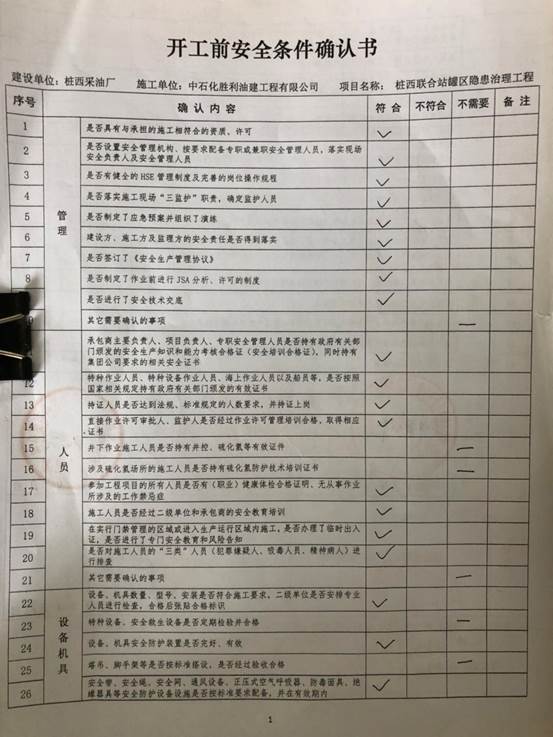 开工前安全条件确认书
建设单位：桩西采油厂 施工单位：中石化胜利油建工程有限公司 项目名称： 桩西联合站罐区隐患治理工程
序号 确 认 内 容 符 合 不符合 不需要 备 注
管理
1 是否具有与承担的施工相符合的资质、许可
2 是否设置安全管理机构、按要求配备专职或兼职安全管理人员，落实现场
安全负责人及安全管理人员
3 是否有健全的 HSE 管理制度及完善的岗位操作规程
4 是否落实施工现场“三监护”职责，确定监护人员
5 是否制定了应急预案并组织了演练
6 建设方、施工方及监理方的安全责任是否得到落实
7 是否签订了《安全生产管理协议》
8 是否制定了作业前进行 JSA 分析、许可的制度
是否进行了安全技术交底
其它需要确认的事项
人员
承包商主要负责人、项目负责人、专职安全管理人员是否持有政府有关部
门颁发的安全生产知识和能力考核合格证（安全培训合格证），同时持有
集团公司要求的相关安全证书
12 特种作业人员、特种设备作业人员、海上作业人员以及船员等，是否按照
国家相关规定持有政府有关部门颁发的有效证书
13 持证人员是否达到法规、标准规定的人数要求，并持证上岗
14 直接作业许可审批人、监护人是否经过作业许可管理培训合格，取得相应
证书
15 井下作业施工人员是否持有井控、硫化氢等有效证件
16 涉及硫化氢场所的施工人员是否持有硫化氢防护技术培训证书
17 参加工程项目的所有人员是否有（职业）健康体检合格证明、无从事作业
所涉及的工作禁忌症
18 施工人员是否经过二级单位和承包商的安全教育培训
19 在实行门禁管理的区域或进入生产运行区域内施工，是否办理了临时出入
证，是否进行了专门安全教育和风险告知
20 是否对施工人员的“三类”人员（犯罪嫌疑人、吸毒人员、精神病人）进
行排查
21 其它需要确认的事项
设备机具
22 设备、机具数量、型号、安装是否符合施工要求，二级单位是否安排专业
人员进行检查，合格后张贴合格标识
23 特种设备、安全救生设备是否定期检验并合格
24 设备、机具安全防护装置是否完好、有效
25 塔吊、脚手架等是否按标准搭设，是否经过验收合格
26 安全带、安全绳、安全网、通风设备、正压式空气呼吸器、防毒面具、绝
缘器具等安全防护设备设施是否按标准要求配备，并在有效期内
1